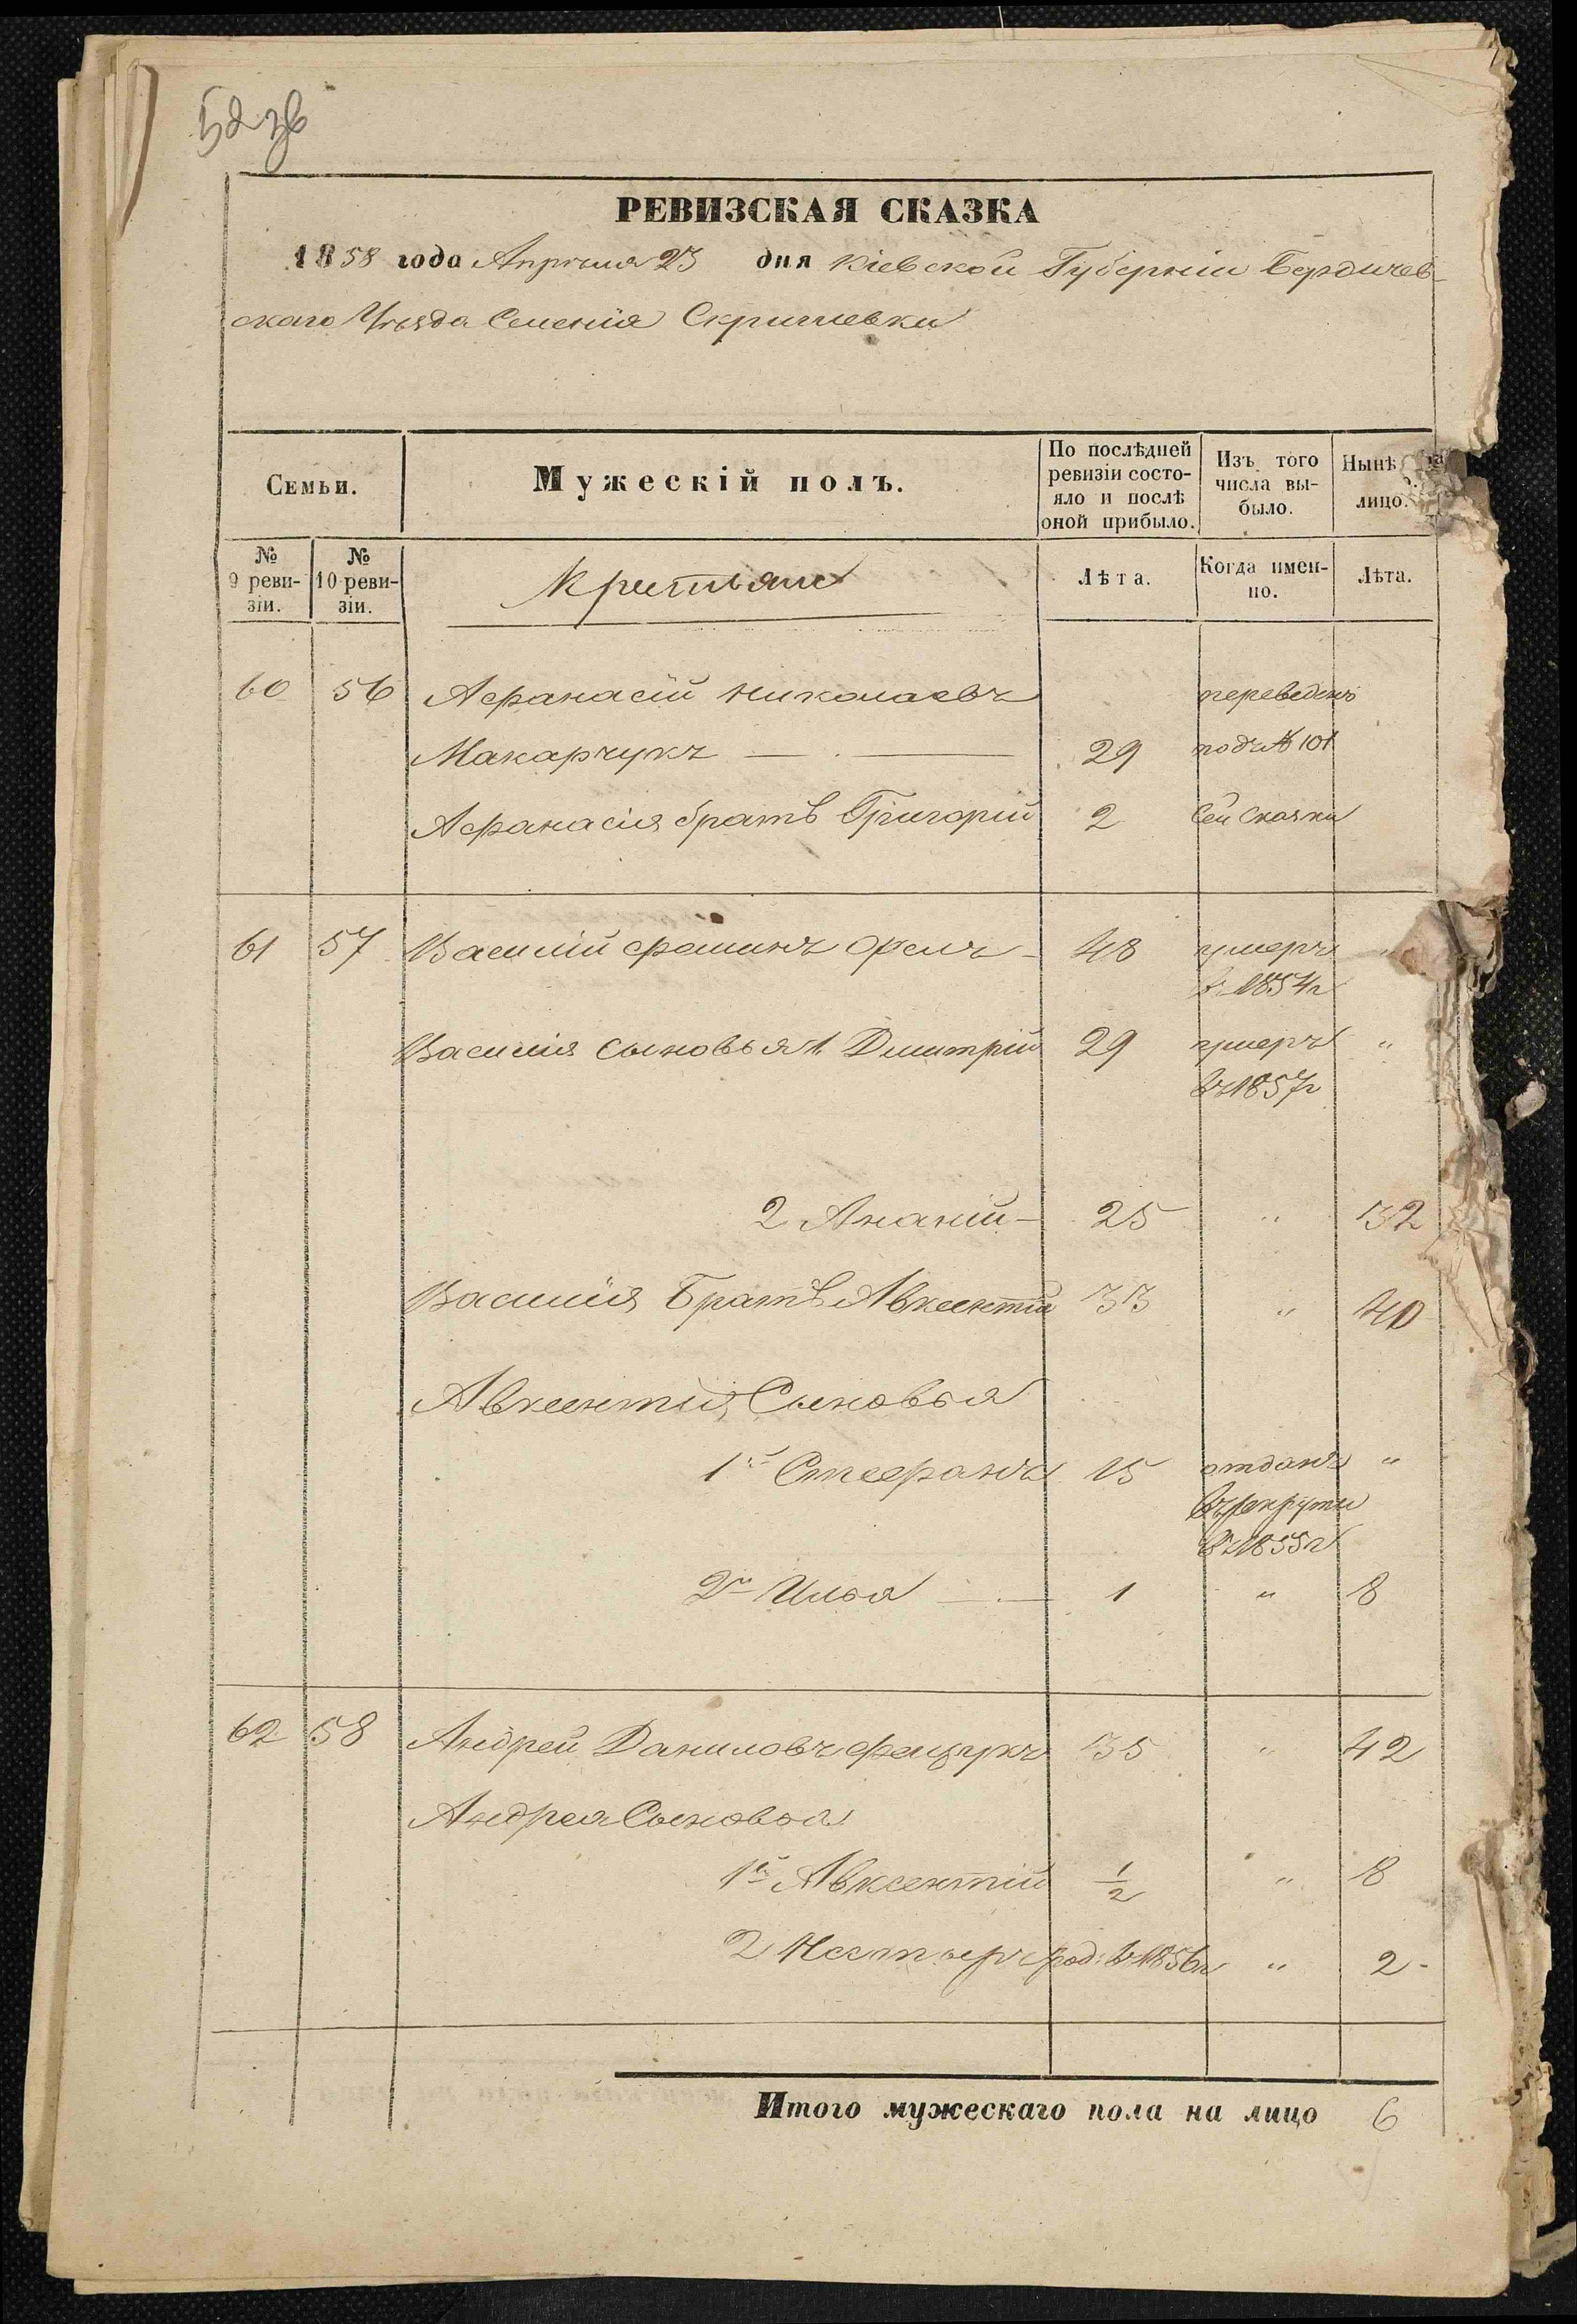 РЕВИЗСКАЯ СКАЗКА
1858 года Апрѣля 23 дня Кіевской Губерніи Бердичев-
скаго Уѣзда Селенія Скригилевки
Семьи.
Мужескій полъ.
По послѣдней
ревизіи состо-
яло и послѣ
оной прибыло.
Изъ того
числа вы-
было.
Нынѣ на
лицо.
№
9 реви-
зіи.
№
10 реви-
зіи.
Крестьяне
Лѣта.
Когда имен-
но.
Лѣта.
60 56 Афанасій Николаевъ переведены
Макарчукъ — 29 подъ № 101
Афанасія братъ Григорій 2 сей Сказки
61 57 Василій Фоминъ Орелъ 48 умеръ "
въ 1854г
Василія сыновья 1. Дмитрій 29 умеръ "
въ 1857г
2 Ананій - 25 " 32
Василія Братъ Авксентій 33 " 40
Авксентія Сыновья
1й Стефанъ 15 отданъ "
въ рекруты
въ 1855г
2й Илья — 1 " 8
62 58 Андрей Даниловъ 35 " 42
Андрея Сыновья
1й Авксентій ½ " 8
2 Нестеръ род: въ 1856г " 2-
Итого мужескаго пола на лицо 6